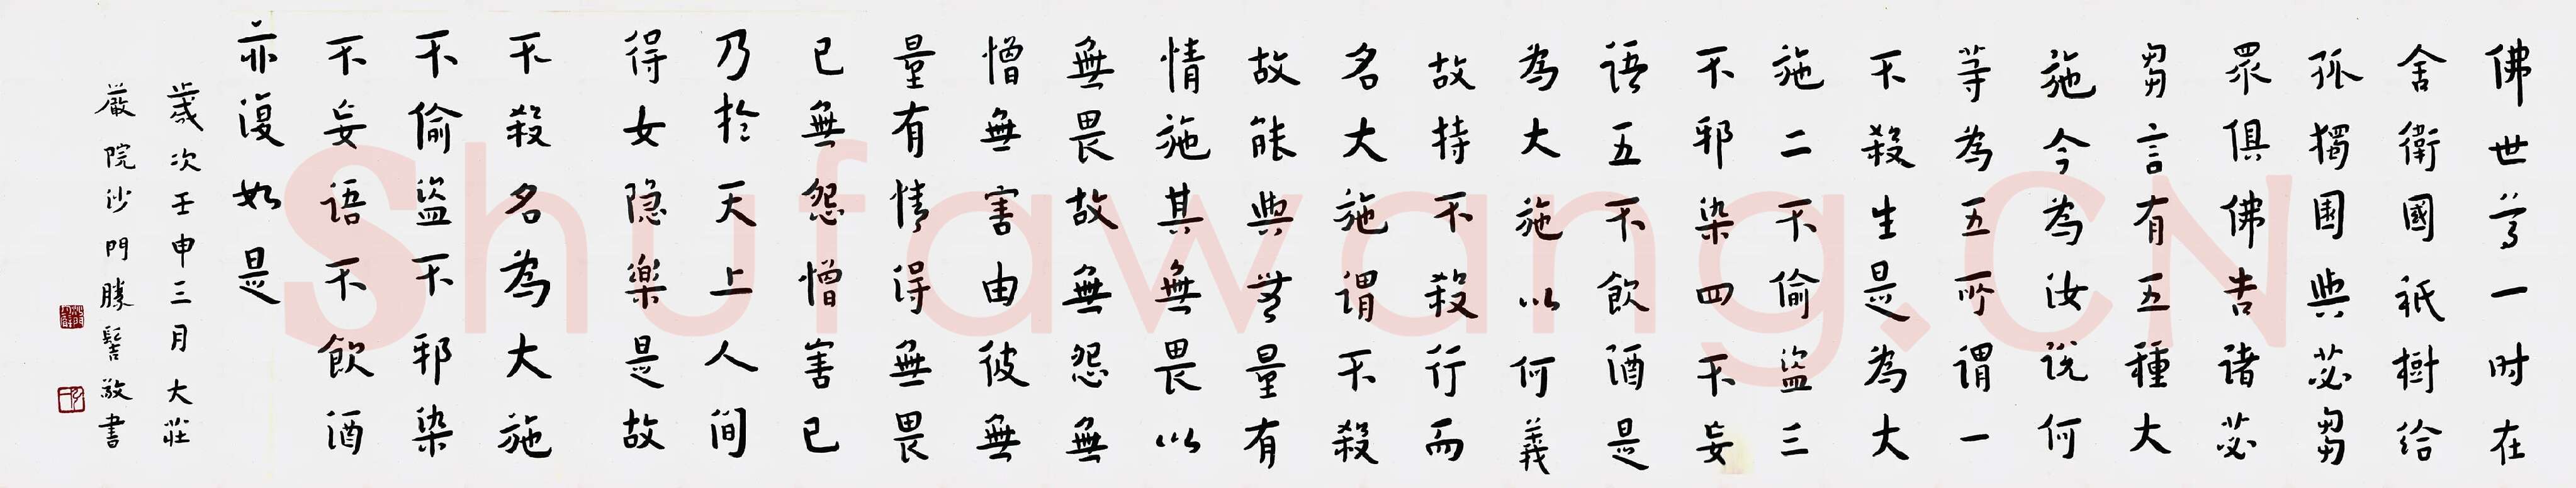 佛世尊一时在
舍衛國祇樹給
孤獨園與苾芻
眾俱佛告诸苾
芻言有五種大
施今為汝说何
等為五所謂一
不殺生是為大
施二不偷盜三
不邪染四不妄
语五不飲酒是
為大施以何義
故持不殺行而
名大施谓不殺
故能與無量有
情施其無畏以
無畏故無怨無
憎無害由彼無
量有情得無畏
已無怨憎害已
乃於天上人间
得女隐樂是故
不殺名為大施
不偷盜不邪染
不妄语不飲酒
亦復如是
歲次壬申三月大莊
嚴院沙門勝髻敬書
Shufawang.CN